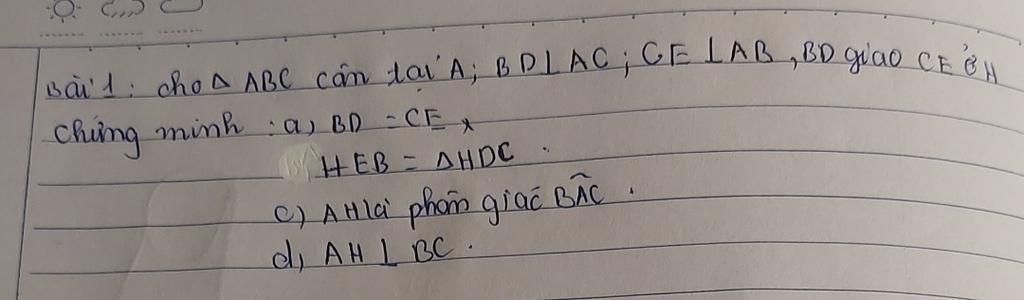 Bài 1: cho Δ ABC cân tại A; BD⊥AC; CE⊥AB, BD giao CE ở H
Chứng minh: a, BD = CE
HEB = ΔHDC.
c) AH là phân giác BÂC.
d, AH ⊥ BC.